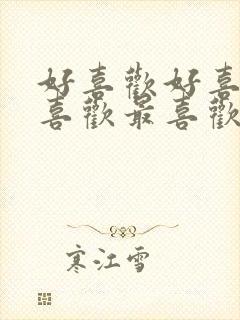 好喜歡好喜
喜歡最喜歡
寒江雪